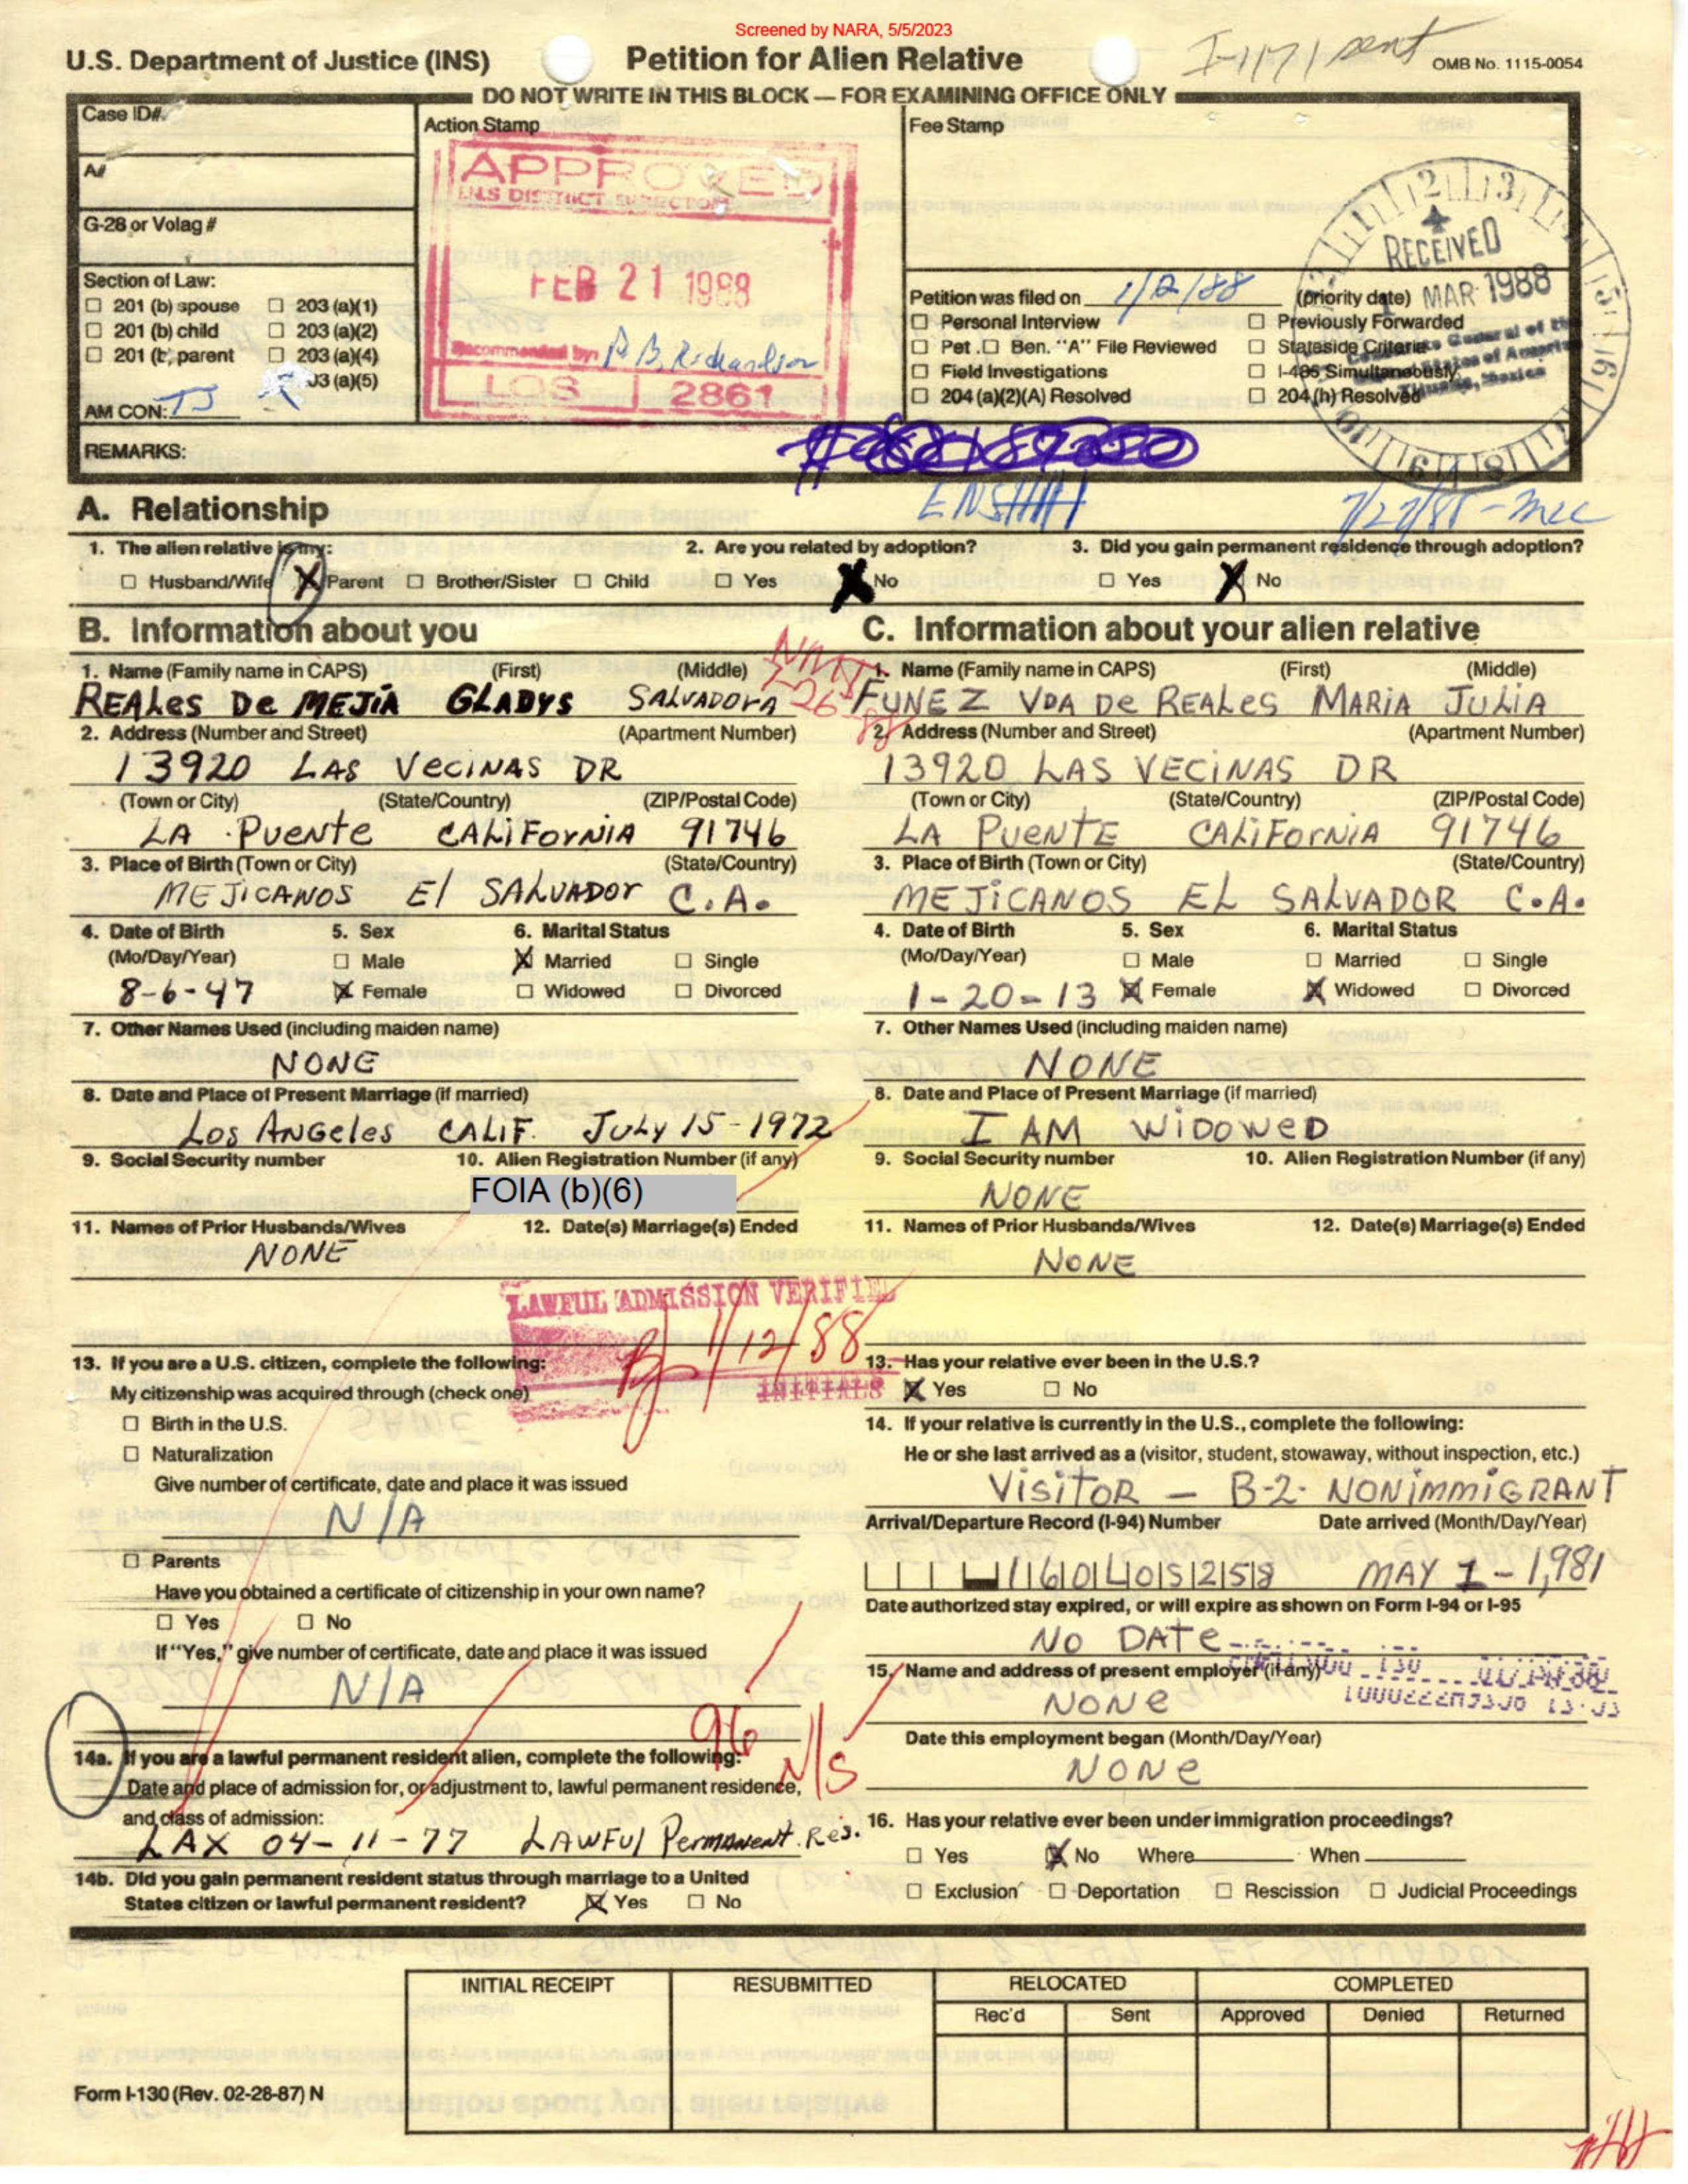 Screened by NARA, 5/5/2023
U.S. Department of Justice (INS) Petition for Alien Relative I-171 sent OMB No. 1115-0054
DO NOT WRITE IN THIS BLOCK — FOR EXAMINING OFFICE ONLY
Case ID#
A#
G-28 or Volag #
Section of Law:
☐ 201 (b) spouse ☐ 203 (a)(1)
☐ 201 (b) child ☐ 203 (a)(2)
☐ 201 (b) parent ☐ 203 (a)(4)
03 (a)(5)
AM CON: TJ
Action Stamp
APPROVED
INS DISTRICT DIRECTOR
FEB 21 1988
Recommended by:
B. Richardson
LOS 2861
Fee Stamp
2 3
RECEIVED
MAR 1988
Petition was filed on 1/12/88 (priority date)
☐ Personal Interview ☐ Previously Forwarded
☐ Pet. ☐ Ben. "A" File Reviewed ☐ Stateside Criteria
☐ Field Investigations ☐ I-485 Simultaneously
☐ 204 (a)(2)(A) Resolved ☐ 204 (h) Resolved
Consulate General of the
United States of America
Tijuana, Mexico
REMARKS:
A. Relationship
1. The alien relative is my: 2. Are you related by adoption? 3. Did you gain permanent residence through adoption?
☐ Husband/Wife X Parent ☐ Brother/Sister ☐ Child ☐ Yes X No ☐ Yes X No
B. Information about you
1. Name (Family name in CAPS) (First) (Middle)
REALES DE MEJIA GLADYS SALVADORA
2. Address (Number and Street) (Apartment Number)
13920 LAS VECINAS DR
(Town or City) (State/Country) (ZIP/Postal Code)
LA PUENTE CALIFORNIA 91746
3. Place of Birth (Town or City) (State/Country)
MEJICANOS El SALVADOR C.A.
4. Date of Birth 5. Sex 6. Marital Status
(Mo/Day/Year) ☐ Male X Married ☐ Single
8-6-47 X Female ☐ Widowed ☐ Divorced
7. Other Names Used (including maiden name)
NONE
8. Date and Place of Present Marriage (if married)
LOS ANGELES CALIF. JULY 15-1972
9. Social Security number 10. Alien Registration Number (if any)
FOIA (b)(6)
11. Names of Prior Husbands/Wives 12. Date(s) Marriage(s) Ended
NONE
LAWFUL ADMISSION VERIFIED
1/12/88
INITIALS
13. If you are a U.S. citizen, complete the following:
My citizenship was acquired through (check one)
☐ Birth in the U.S.
☐ Naturalization
Give number of certificate, date and place it was issued
N/A
☐ Parents
Have you obtained a certificate of citizenship in your own name?
☐ Yes ☐ No
If "Yes," give number of certificate, date and place it was issued
N/A
14a. If you are a lawful permanent resident alien, complete the following:
Date and place of admission for, or adjustment to, lawful permanent residence,
and class of admission:
LAX 04-11-77 LAWFUL PERMANENT. RES.
14b. Did you gain permanent resident status through marriage to a United
States citizen or lawful permanent resident? X Yes ☐ No
N/S
C. Information about your alien relative
1. Name (Family name in CAPS) (First) (Middle)
FUNEZ VDA DE REALES MARIA JULIA
2. Address (Number and Street) (Apartment Number)
13920 LAS VECINAS DR
(Town or City) (State/Country) (ZIP/Postal Code)
LA PUENTE CALIFORNIA 91746
3. Place of Birth (Town or City) (State/Country)
MEJICANOS EL SALVADOR C.A.
4. Date of Birth 5. Sex 6. Marital Status
(Mo/Day/Year) ☐ Male ☐ Married ☐ Single
1-20-13 X Female X Widowed ☐ Divorced
7. Other Names Used (including maiden name)
NONE
8. Date and Place of Present Marriage (if married)
I AM WIDOWED
9. Social Security number 10. Alien Registration Number (if any)
NONE
11. Names of Prior Husbands/Wives 12. Date(s) Marriage(s) Ended
NONE
13. Has your relative ever been in the U.S.?
X Yes ☐ No
14. If your relative is currently in the U.S., complete the following:
He or she last arrived as a (visitor, student, stowaway, without inspection, etc.)
VISITOR — B-2- NONIMMIGRANT
Arrival/Departure Record (I-94) Number Date arrived (Month/Day/Year)
160405258 MAY 1-1,981
Date authorized stay expired, or will expire as shown on Form I-94 or I-95
NO DATE
15. Name and address of present employer (if any)
NONE
Date this employment began (Month/Day/Year)
NONE
16. Has your relative ever been under immigration proceedings?
☐ Yes X No Where When
☐ Exclusion ☐ Deportation ☐ Rescission ☐ Judicial Proceedings
INITIAL RECEIPT RESUBMITTED RELOCATED COMPLETED
Rec'd Sent Approved Denied Returned
Form I-130 (Rev. 02-28-87) N